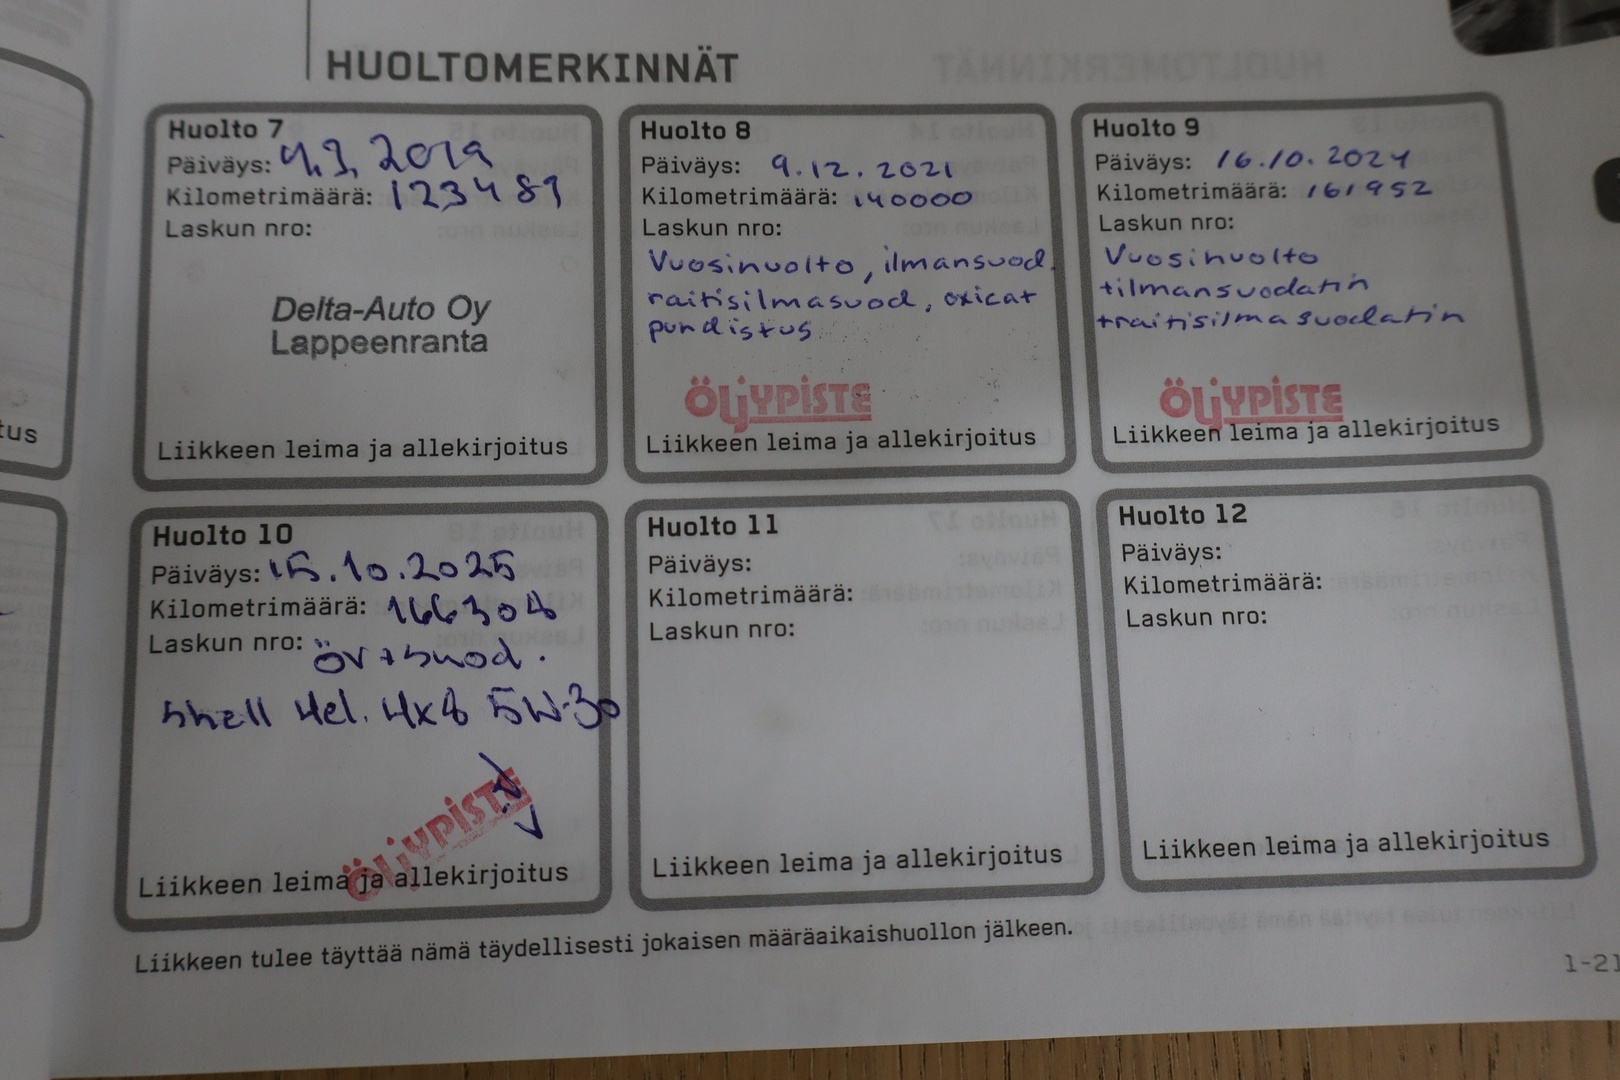 HUOLTOMERKINNÄT
Huolto 7
Päiväys: 9.3.2019
Kilometrimäärä: 123481
Laskun nro:
Delta-Auto Oy
Lappeenranta
Liikkeen leima ja allekirjoitus
Huolto 8
Päiväys: 9.12.2021
Kilometrimäärä: 140000
Laskun nro:
Vuosihuolto, ilmansuod.
raitisilmasuod, oxicat
puhdistus
ÖLJYPISTE
Liikkeen leima ja allekirjoitus
Huolto 9
Päiväys: 16.10.2024
Kilometrimäärä: 161952
Laskun nro:
Vuosihuolto
+ilmansuodatin
+raitisilmasuodatin
ÖLJYPISTE
Liikkeen leima ja allekirjoitus
Huolto 10
Päiväys: 15.10.2025
Kilometrimäärä: 166308
Laskun nro:
öv+suod.
Shell Hel. Hx8 5W-30
ÖLJYPISTE
Liikkeen leima ja allekirjoitus
Huolto 11
Päiväys:
Kilometrimäärä:
Laskun nro:
Liikkeen leima ja allekirjoitus
Huolto 12
Päiväys:
Kilometrimäärä:
Laskun nro:
Liikkeen leima ja allekirjoitus
Liikkeen tulee täyttää nämä täydellisesti jokaisen määräaikaishuollon jälkeen.
1-21
tus